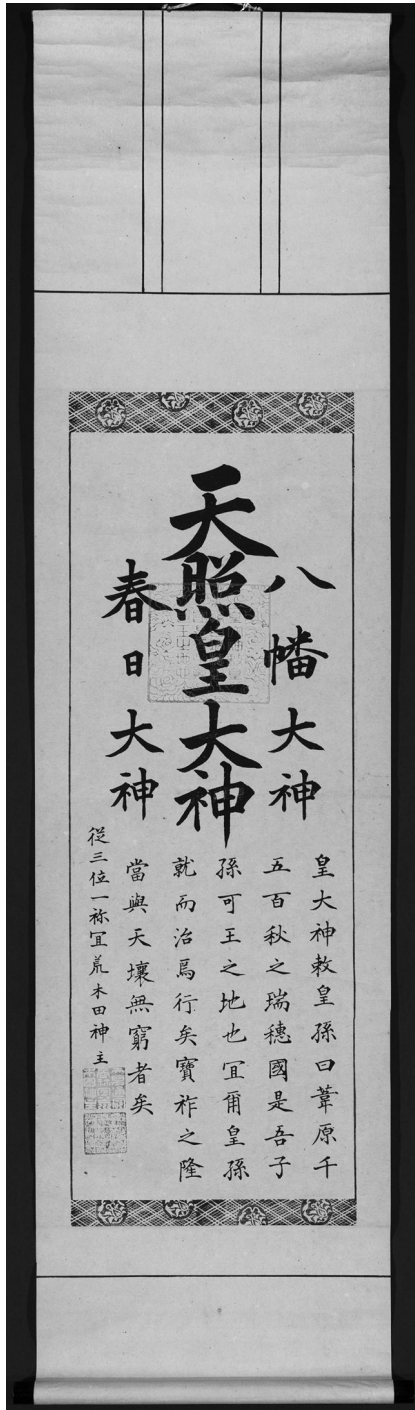 天照皇大神
八幡大神
春日大神
皇大神敕皇孫曰葦原千
五百秋之瑞穗國是吾子
孫可王之地也宜爾皇孫
就而治焉行矣寶祚之隆
當與天壤無窮者矣
從三位一祢宜荒木田神主